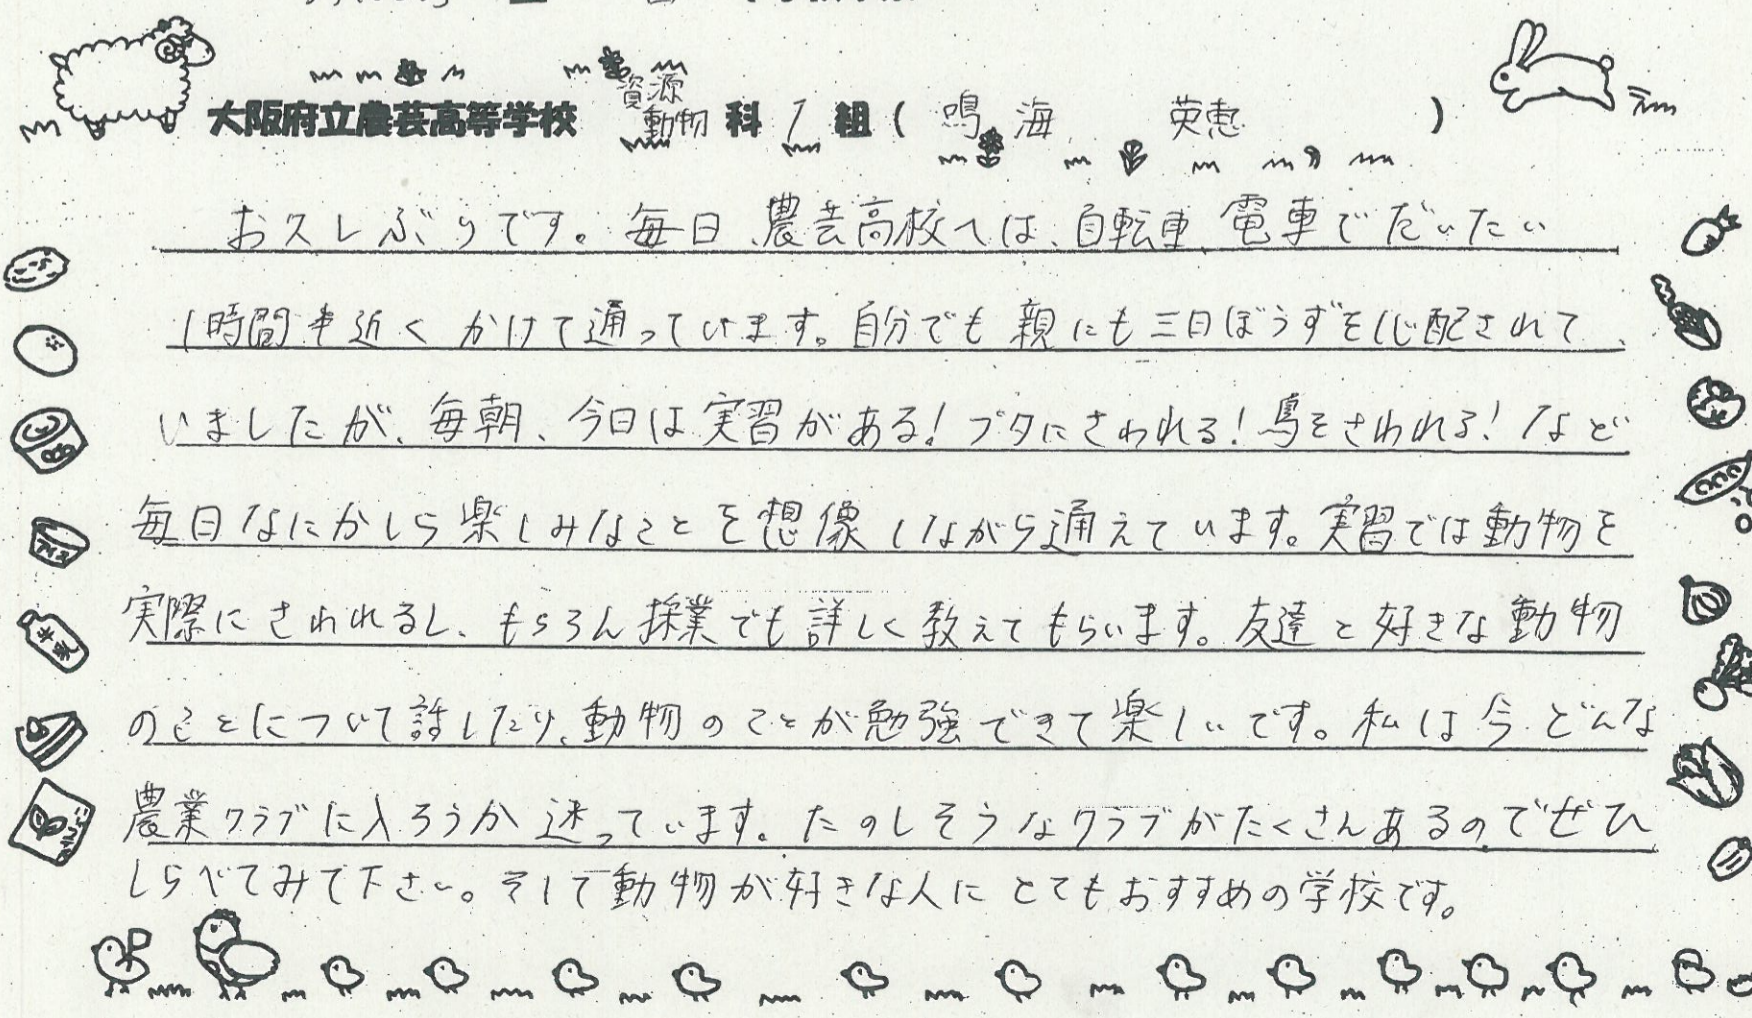 大阪府立農芸高等学校 資源動物科1組(鳴海 英恵)
お久しぶりです。毎日、農芸高校へは、自転車、電車でだいたい
1時間半近くかけて通っています。自分でも親にも三日ぼうずを心配されて、
いましたが、毎朝、今日は実習がある!ブタにさわれる!鳥をさわれる!など
毎日なにかしら楽しみなことを想像しながら通えています。実習では動物を
実際にさわれるし、もちろん授業でも詳しく教えてもらいます。友達と好きな動物
のことについて話したり、動物のことが勉強できて楽しいです。私は今、どんな
農業クラブに入ろうか迷っています。たのしそうなクラブがたくさんあるのでぜひ
しらべてみて下さい。そして動物が好きな人にとてもおすすめの学校です。